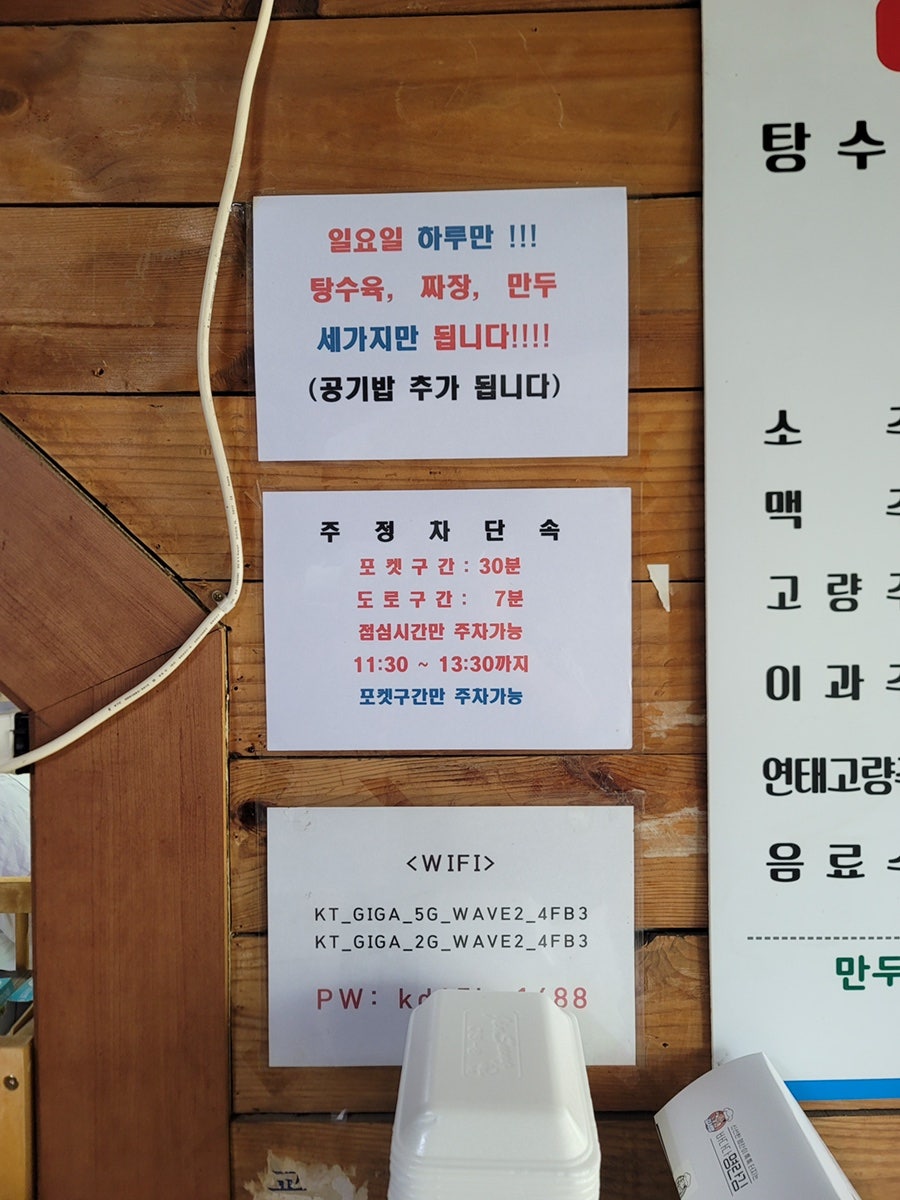 일요일 하루만 !!!
탕수육, 짜장, 만두
세가지만 됩니다!!!!
(공기밥 추가 됩니다)
주 정 차 단 속
포 켓 구 간 : 30분
도 로 구 간 : 7분
점심시간만 주차가능
11:30 ~ 13:30까지
포켓구간만 주차가능
<WIFI>
KT_GIGA_5G_WAVE2_4FB3
KT_GIGA_2G_WAVE2_4FB3
PW:
탕 수
소
맥
고 량
이 과
연태고량
음 료
만두